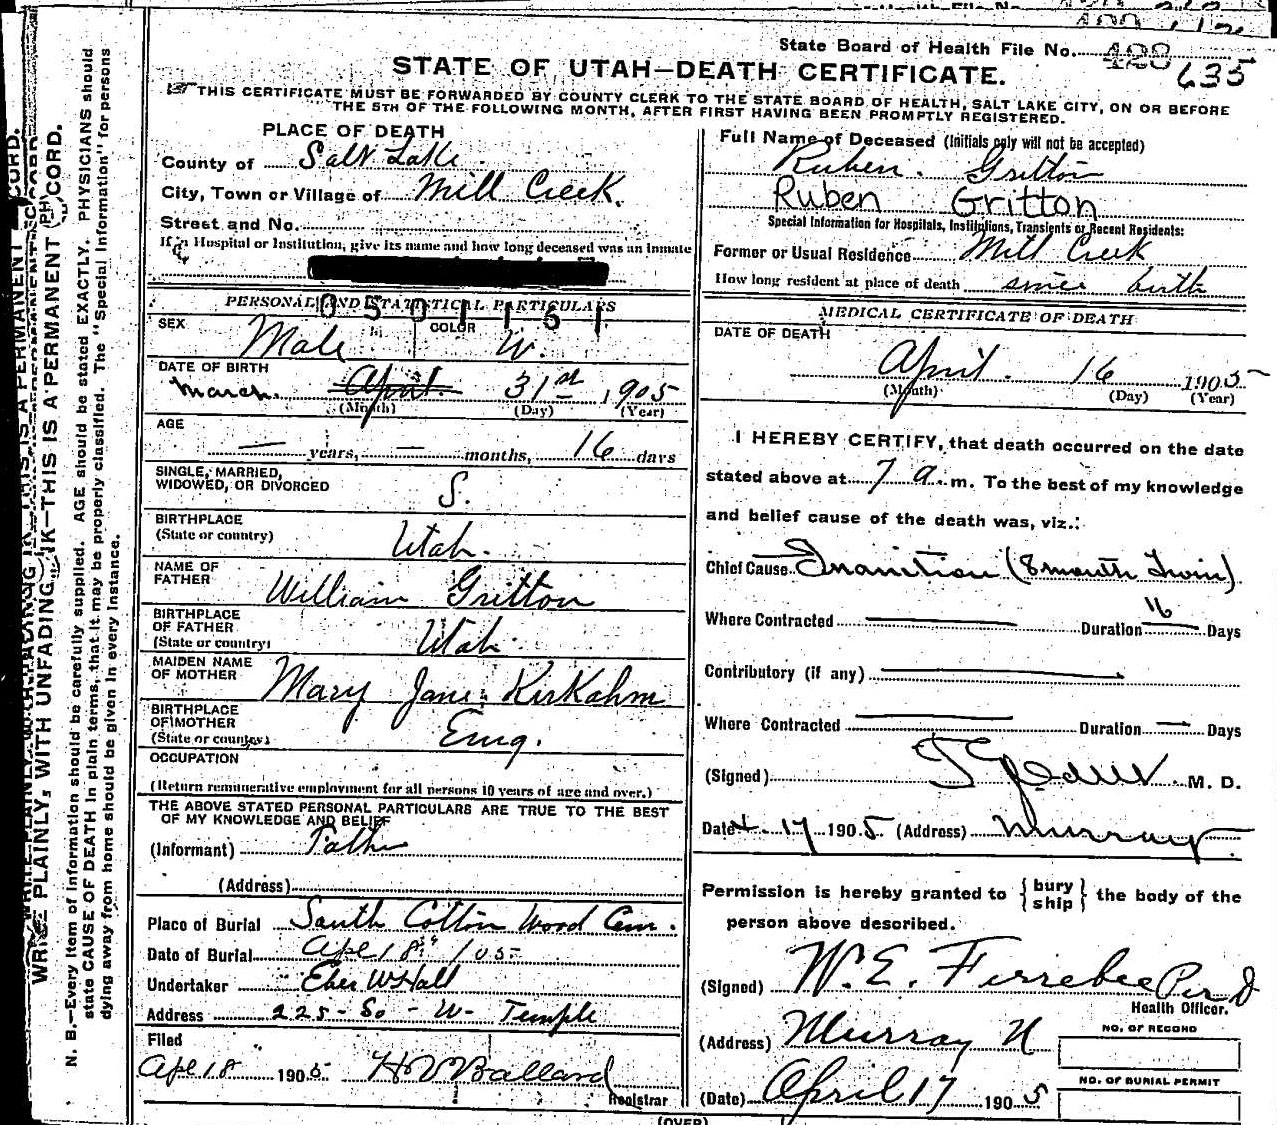 State Board of Health File No. 428
635
STATE OF UTAH—DEATH CERTIFICATE.
THIS CERTIFICATE MUST BE FORWARDED BY COUNTY CLERK TO THE STATE BOARD OF HEALTH, SALT LAKE CITY, ON OR BEFORE
THE 5TH OF THE FOLLOWING MONTH, AFTER FIRST HAVING BEEN PROMPTLY REGISTERED.
WRITE PLAINLY, WITH UNFADING INK—THIS IS A PERMANENT RECORD.
N. B.—Every item of information should be carefully supplied. AGE should be stated EXACTLY. PHYSICIANS should
state CAUSE OF DEATH in plain terms, that it may be properly classified. The "Special Information" for persons
dying away from home should be given in every instance.
PLACE OF DEATH
County of Salt Lake.
City, Town or Village of Mill Creek.
Street and No.
If in Hospital or Institution, give its name and how long deceased was an inmate
PERSONAL AND STATISTICAL PARTICULARS
0501161
SEX Male COLOR W.
DATE OF BIRTH
March. April. 31st 1905
(Month) (Day) (Year)
AGE
— years, — months, 16 days
SINGLE, MARRIED,
WIDOWED, OR DIVORCED S.
BIRTHPLACE
(State or country) Utah.
NAME OF
FATHER William Gritton
BIRTHPLACE
OF FATHER
(State or country) Utah
MAIDEN NAME
OF MOTHER Mary Jane Kirkahm
BIRTHPLACE
OF MOTHER
(State or country) Eng.
OCCUPATION
(Return remunerative employment for all persons 10 years of age and over.)
THE ABOVE STATED PERSONAL PARTICULARS ARE TRUE TO THE BEST
OF MY KNOWLEDGE AND BELIEF
(Informant) Father
(Address)
Place of Burial South Cotton Wood Cem.
Date of Burial Apl 18th /05
Undertaker Eber W Hall
Address 225 - So - W - Temple
Filed
Apl 18 1905 H V Ballard
Registrar
Full Name of Deceased (Initials only will not be accepted)
Ruben. Gritton
Ruben Gritton
Special Information for Hospitals, Institutions, Transients or Recent Residents:
Former or Usual Residence Mill Creek
How long resident at place of death since birth
MEDICAL CERTIFICATE OF DEATH
DATE OF DEATH
April. 16 1905
(Month) (Day) (Year)
I HEREBY CERTIFY, that death occurred on the date
stated above at 7 a. m. To the best of my knowledge
and belief cause of the death was, viz.:
Chief Cause Inanition (8 month Twin)
Where Contracted — Duration 16 Days
Contributory (if any) —
Where Contracted — Duration — Days
(Signed) M. D.
Date 4. 17 1905 (Address) Murray.
Permission is hereby granted to {bury
ship} the body of the
person above described.
(Signed) W. E. Ferrebee Per D
Health Officer.
(Address) Murray U
(Date) April 17 1905
NO. OF RECORD
NO. OF BURIAL PERMIT
(OVER)